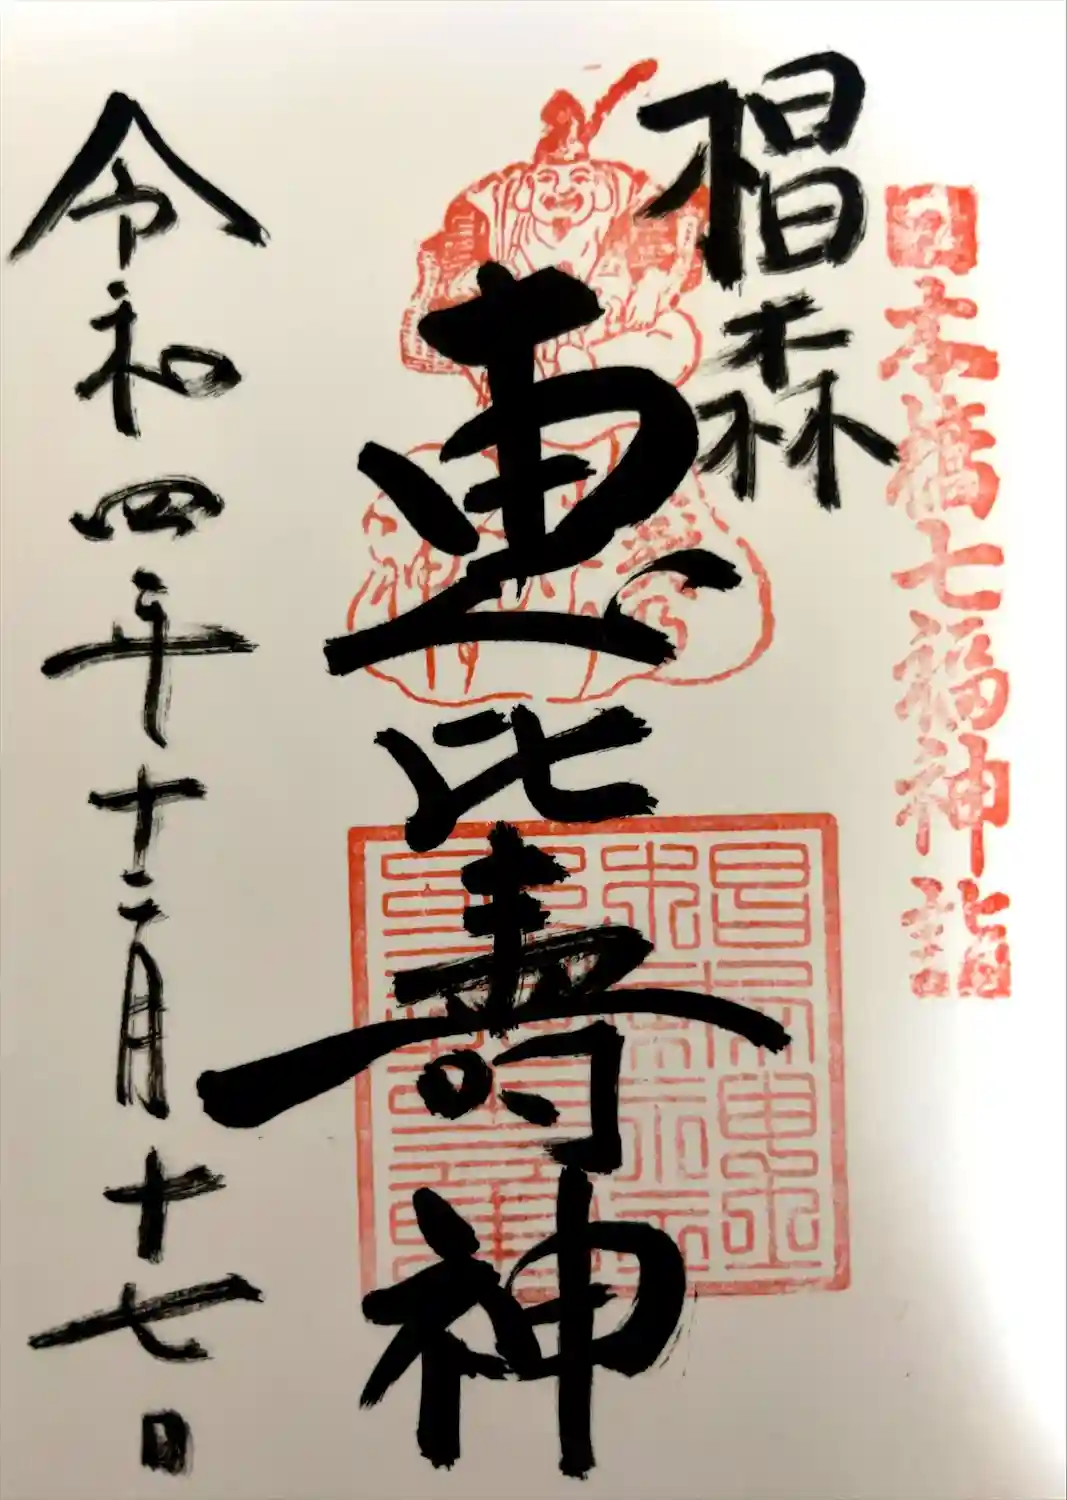 日本橋七福神詣
椙森
恵比寿神
令和四年十二月十七日